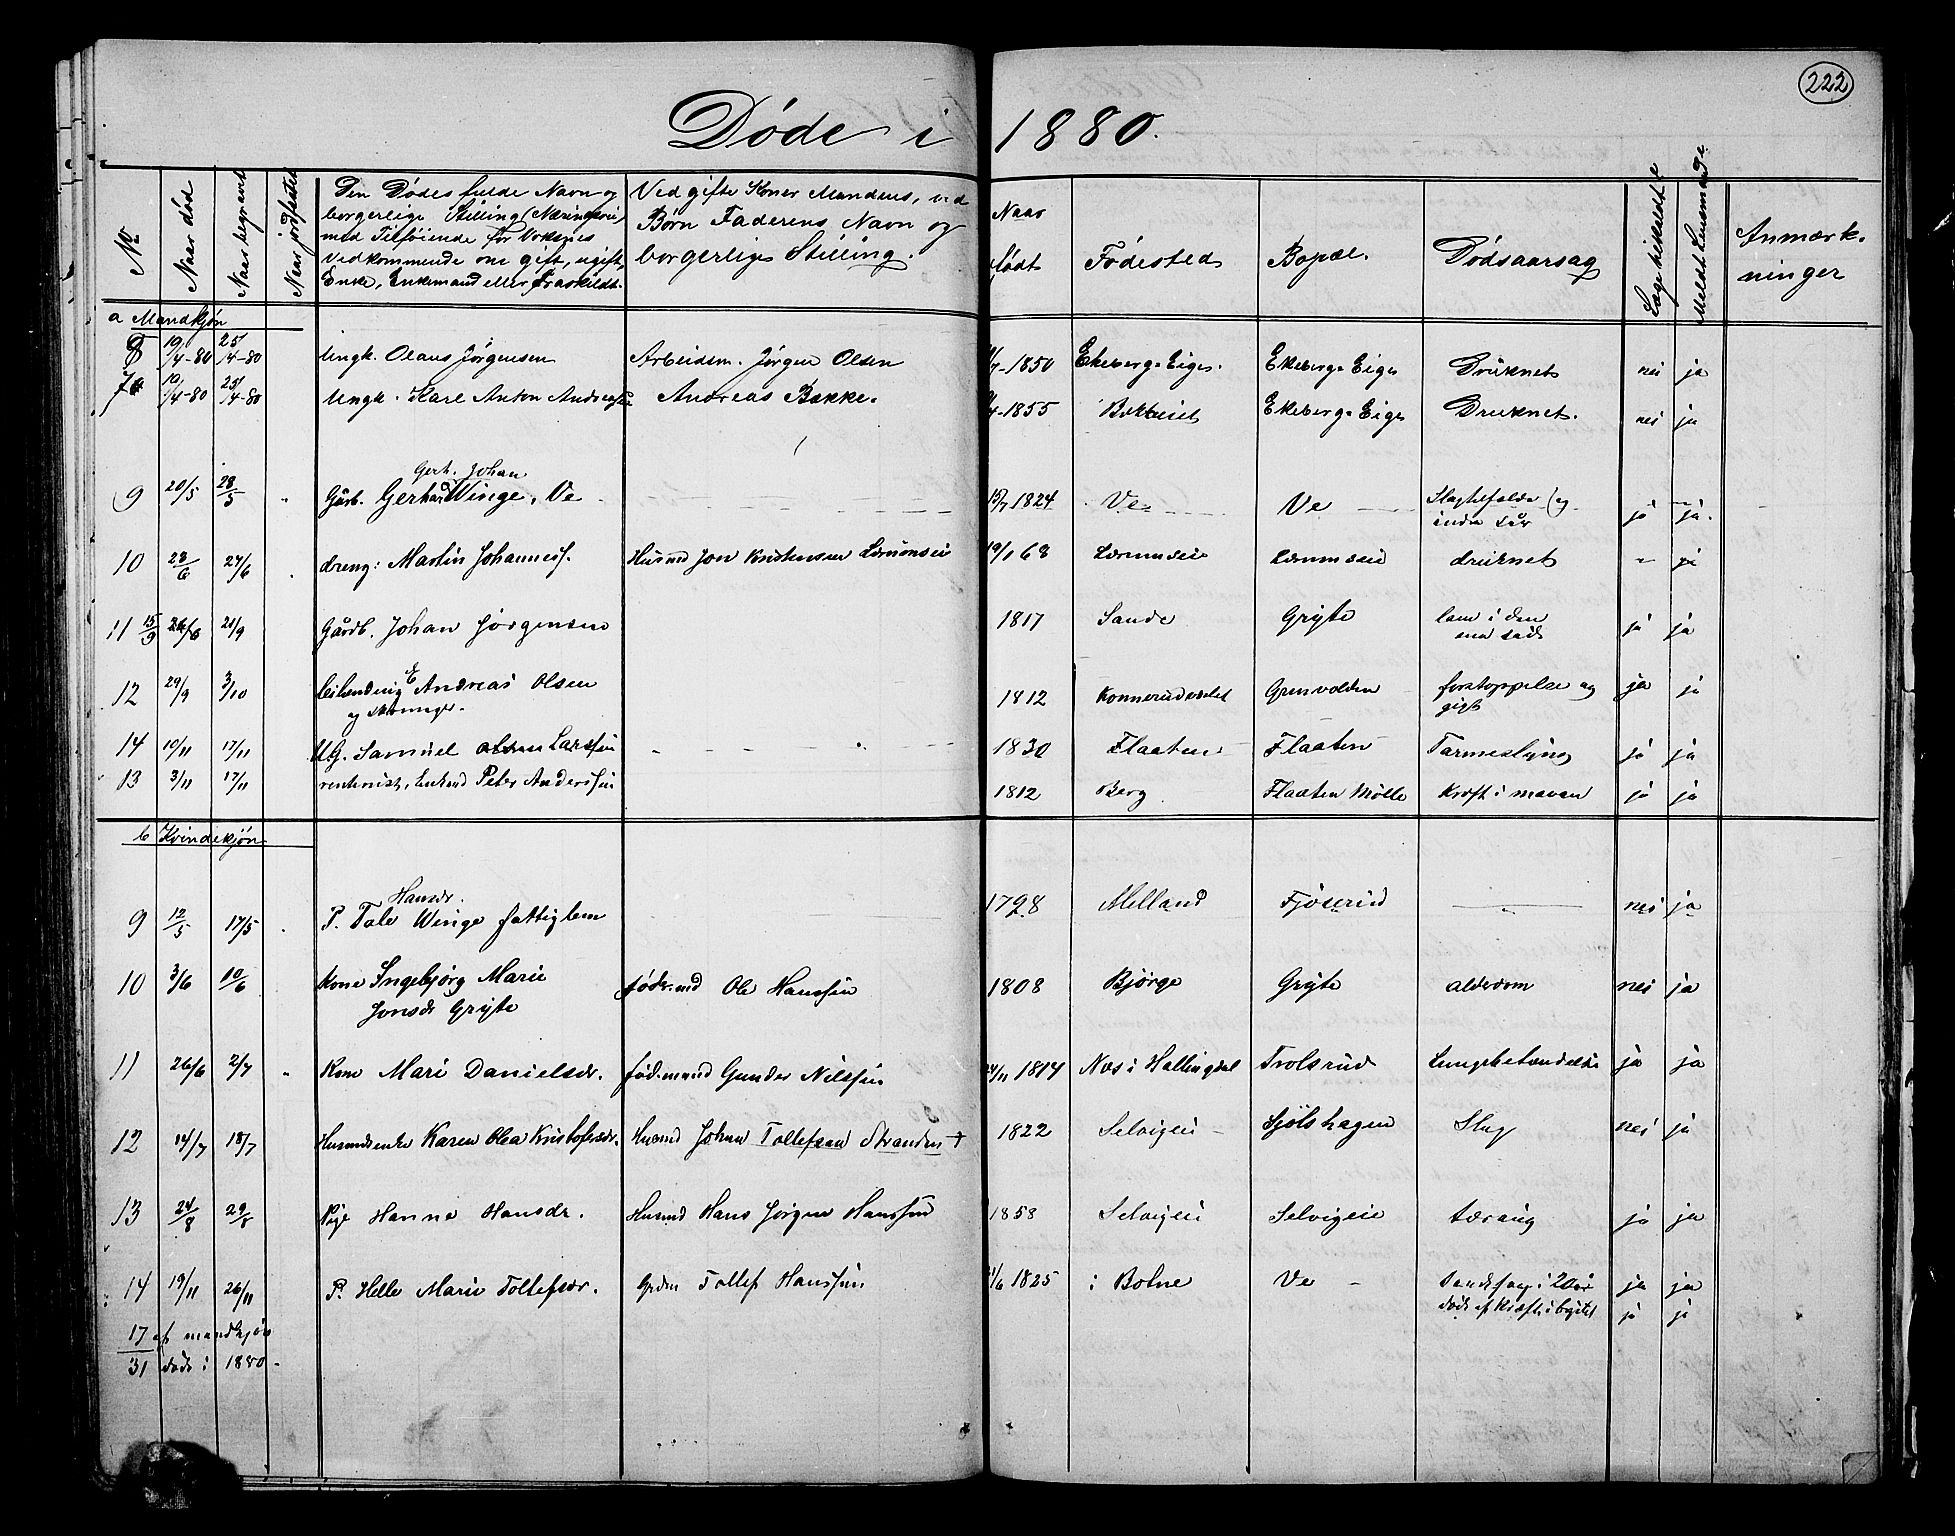 222
Døde i 1880.
No
Naar død
Naar begravet
Naar jordfæstet
Den Dødes fulde Navn og
borgerlige Stilling (Næringsvei)
med Tilføiende for Voksnes
Vedkommende om gift, ugift,
Enke, Enkemand eller fraskildt.
Ved gifte Koner Mandens, ved
Børn Faderens Navn og
borgerlige Stilling.
Naar
født
Fødested
Bopæl.
Dødsaarsag
Læge tilkaldt
Meldt Lensmand
Anmærk-
ninger
a Mandkjøn
8 19/4-80 25/4-80 Ungk. Olaus Jørgensen Arbeidsm. Jørgen Olsen 1850 Ekeberg Eige. Ekeberg Eige Druknet nei ja
7 19/4-80 25/4-80 Ungk. Karl Anton Andreas Bakke. 1855 Ekeberg Eige Druknet. nei ja
Gerh. Johan
9 20/5 28/5 Gårb. Gerhard Winge, Ve 15/7 1824 Ve Ve Slagtilfælde og
indre Sår ja ja.
10 23/6 27/6 dreng: Martin Johanness. Husmd Jon Kristensen 19/1 68 druknet - ja
11 15/9 21/9 Gårdb. Johan Jørgensen 1817 Sande Gryte lam i den
ene side ja ja
12 29/9 3/10 E Andreas Olsen 1812 Grenvolden forstoppelse og
gigt ja ja
og skomager.
14 10/11 17/11 UG. Samuel Larssen 1830 Flaaten Flaaten Tarmeslyng ja ja
13 3/11 17/11 Enkemd Peter Anderssen 1812 Berg Flaaten Mølle Kræft i maven ja ja
b Kvindekjøn
Hansdr.
9 12/5 17/5 P. Tale Winge fattiglem 1798 Melland Fjøserud nei ja
10 3/6 10/6 Kone Ingebjørg Marie
Jonsdr Gryte Ole Hanssen 1808 Bjørge Gryte alderdom nei ja
11 26/6 2/7 Kone Mari Danielsdr. fød.mand Gunder Nilssen 1814 Næs i Hallingdal Trolsrud Lungebetændelse ja ja
12 14/7 18/7 Husmdsenke Karen Olea Kristofersdr. Husmd Johan Tollefsen Stranden + 1822 Selvigeie Slag nei ja
13 24/8 29/8 Pige Hanna Hansdr. Husmd Hans Jørgen Hanssen 1858 Selvigeie Selvigeie tæring ja ja
14 19/11 26/11 P. Helle Marie Tollefsdr. Tollef Hanssen 1825 i Botne Ve Sindssyg i 20 år ja ja
døde af Kræft i brystet ja ja
17 af mandkjøn
31 døde i 1880.